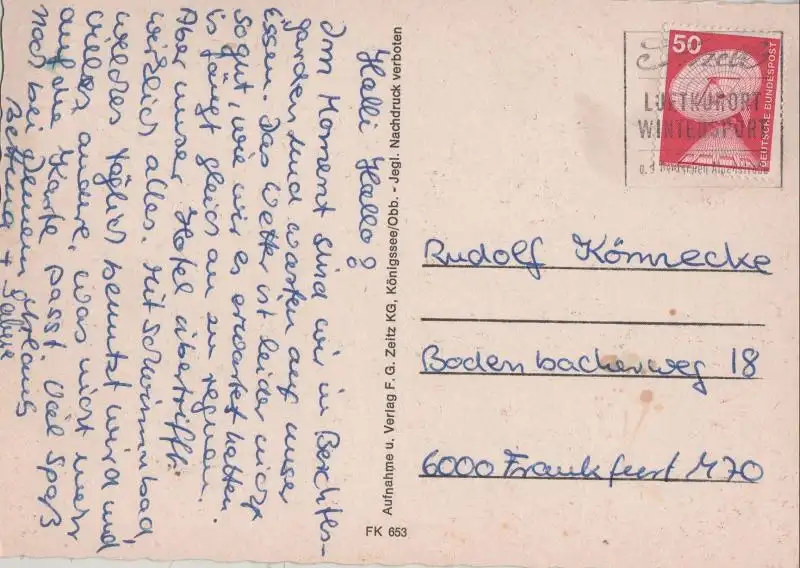 Halli Hallo!
Im Moment sind wir in Berchtes-
garden und warten auf unser
Essen. Das Wetter ist leider nicht
so gut, wie wir es erwartet hatten
es fängt gleich an zu regnen.
Aber unser Hotel übertrifft
wirklich alles. Mit Schwimmbad
welches täglich benutzt wird und
vieles andere, was nicht mehr
auf die Karte passt. Viel Spaß
noch bei Deinem Urlaub
Bettina + Sabine
Aufnahme u. Verlag F. G. Zeitz KG, Königssee/Obb. - Jegl. Nachdruck verboten
FK 653
50
DEUTSCHE BUNDESPOST
LUFTKURORT
WINTERSPORT
Rudolf Könnecke
Bodenbacherweg 18
6000 Frankfurt M70